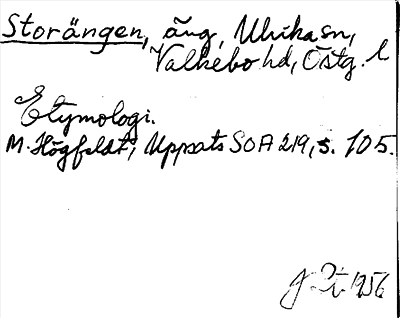 Storängen, äng, Ulrikasn,
Valkebo hd, Östg. l
Etymologi.
M. Högfeldt, Uppsats SOA 219, s. 105.
1956